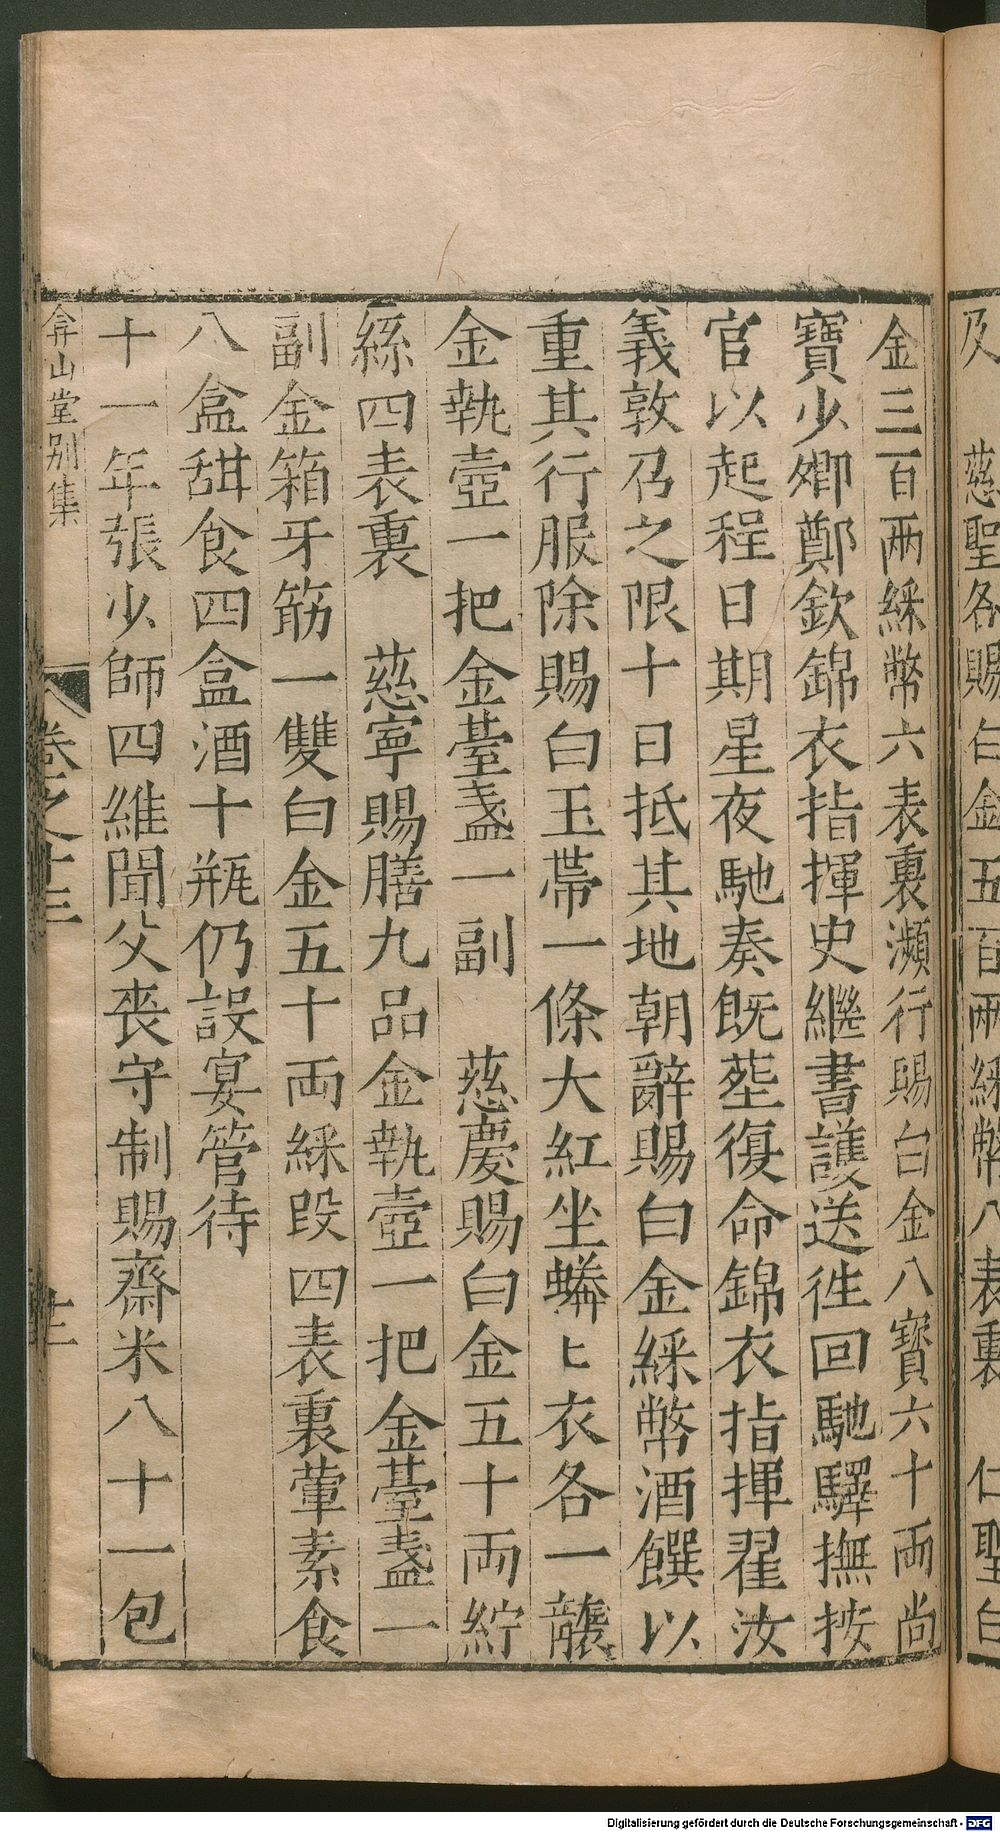 及　慈聖各賜白金五百兩綵幣八表裏　仁聖白
金三百兩綵幣六表裏瀕行賜白金八寶六十兩尚
寶少卿鄭欽錦衣指揮史繼書護送徃回馳驛撫按
官以起程日期星夜馳奏既塟復命錦衣指揮翟汝
義敦乃之限十日抵其地朝辭賜白金綵幣酒饌以
重其行服除賜白玉帶一條大紅坐蟒〻衣各一襲
金執壺一把金臺盞一副　慈慶賜白金五十両紵
絲四表裏　慈寧賜膳九品金執壺一把金臺盞一
副金箱牙筯一雙白金五十両綵段四表裏葷素食
八盒甜食四盒酒十瓶仍設宴管待
十一年張少師四維聞父喪守制賜齋米八十一包
弇山堂别集
卷之十三
十二
Digitalisierung gefördert durch die Deutsche Forschungsgemeinschaft - DFG